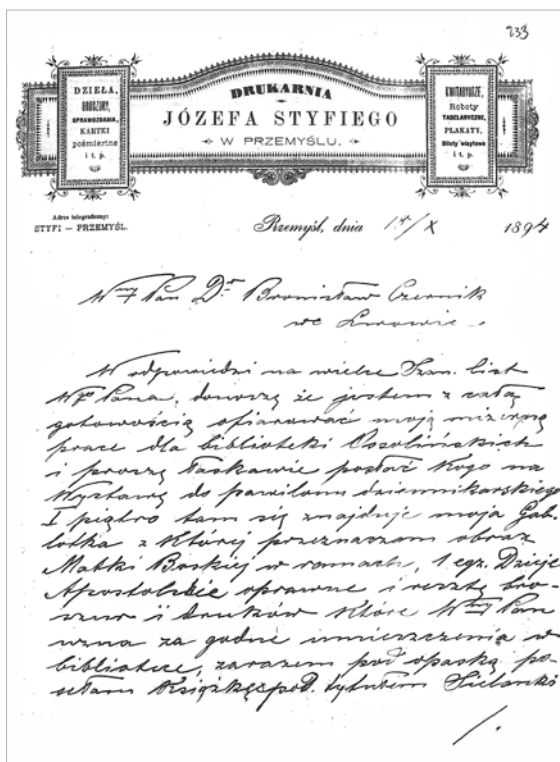 233
DZIEŁA,
BROSZURY,
SPRAWOZDANIA,
KARTKI
pośmiertne
i t. p.
DRUKARNIA
JÓZEFA STYFIEGO
W PRZEMYŚLU.
KWITARYUSZE,
Roboty
TABELARYCZNE,
PLAKATY,
Bilety wizytowe
i t. p.
Adres telegraficzny:
STYFI — PRZEMYŚL.
Przemyśl, dnia 1/X 1894
Wny Pan Dr Bronisław Czernik
we Lwowie.
W odpowiedzi na wielce Szan. list
Wgo Pana, donoszę że jestem z całą
gotowością ofiarować moją mizerną
pracę dla biblioteki Ossolińskich
i proszę łaskawie posłać kogo na
Wystawę do pawilonu dziennikarskiego
I piętro tam się znajduje moja Gab-
lotka z której przeznaczam obraz
Matki Boskiej w ramach, 1 egz. Dzieje
Apostolskie oprawne i resztę bro-
szur i druków które Wny Pan
uzna za godne umieszczenia w
bibliotece, zarazem pod opaską po-
sełam książkę pod. tytułem Sielanki
/.